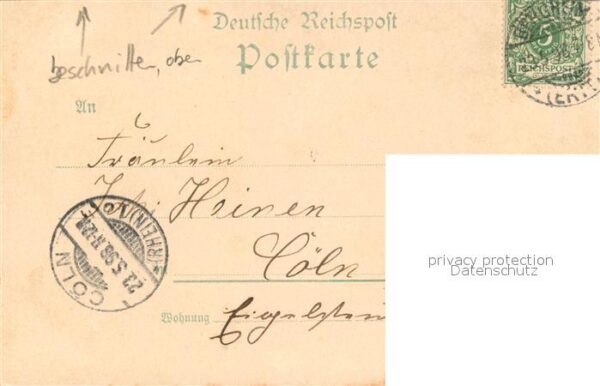 Deutsche Reichspost
Postkarte
beschnitten, oben
5
REICHSPOST
An
Fräulein
Heinen
Cöln
privacy protection
Datenschutz
CÖLN
(RHEIN)
22.5.98
Wohnung Eigelstein